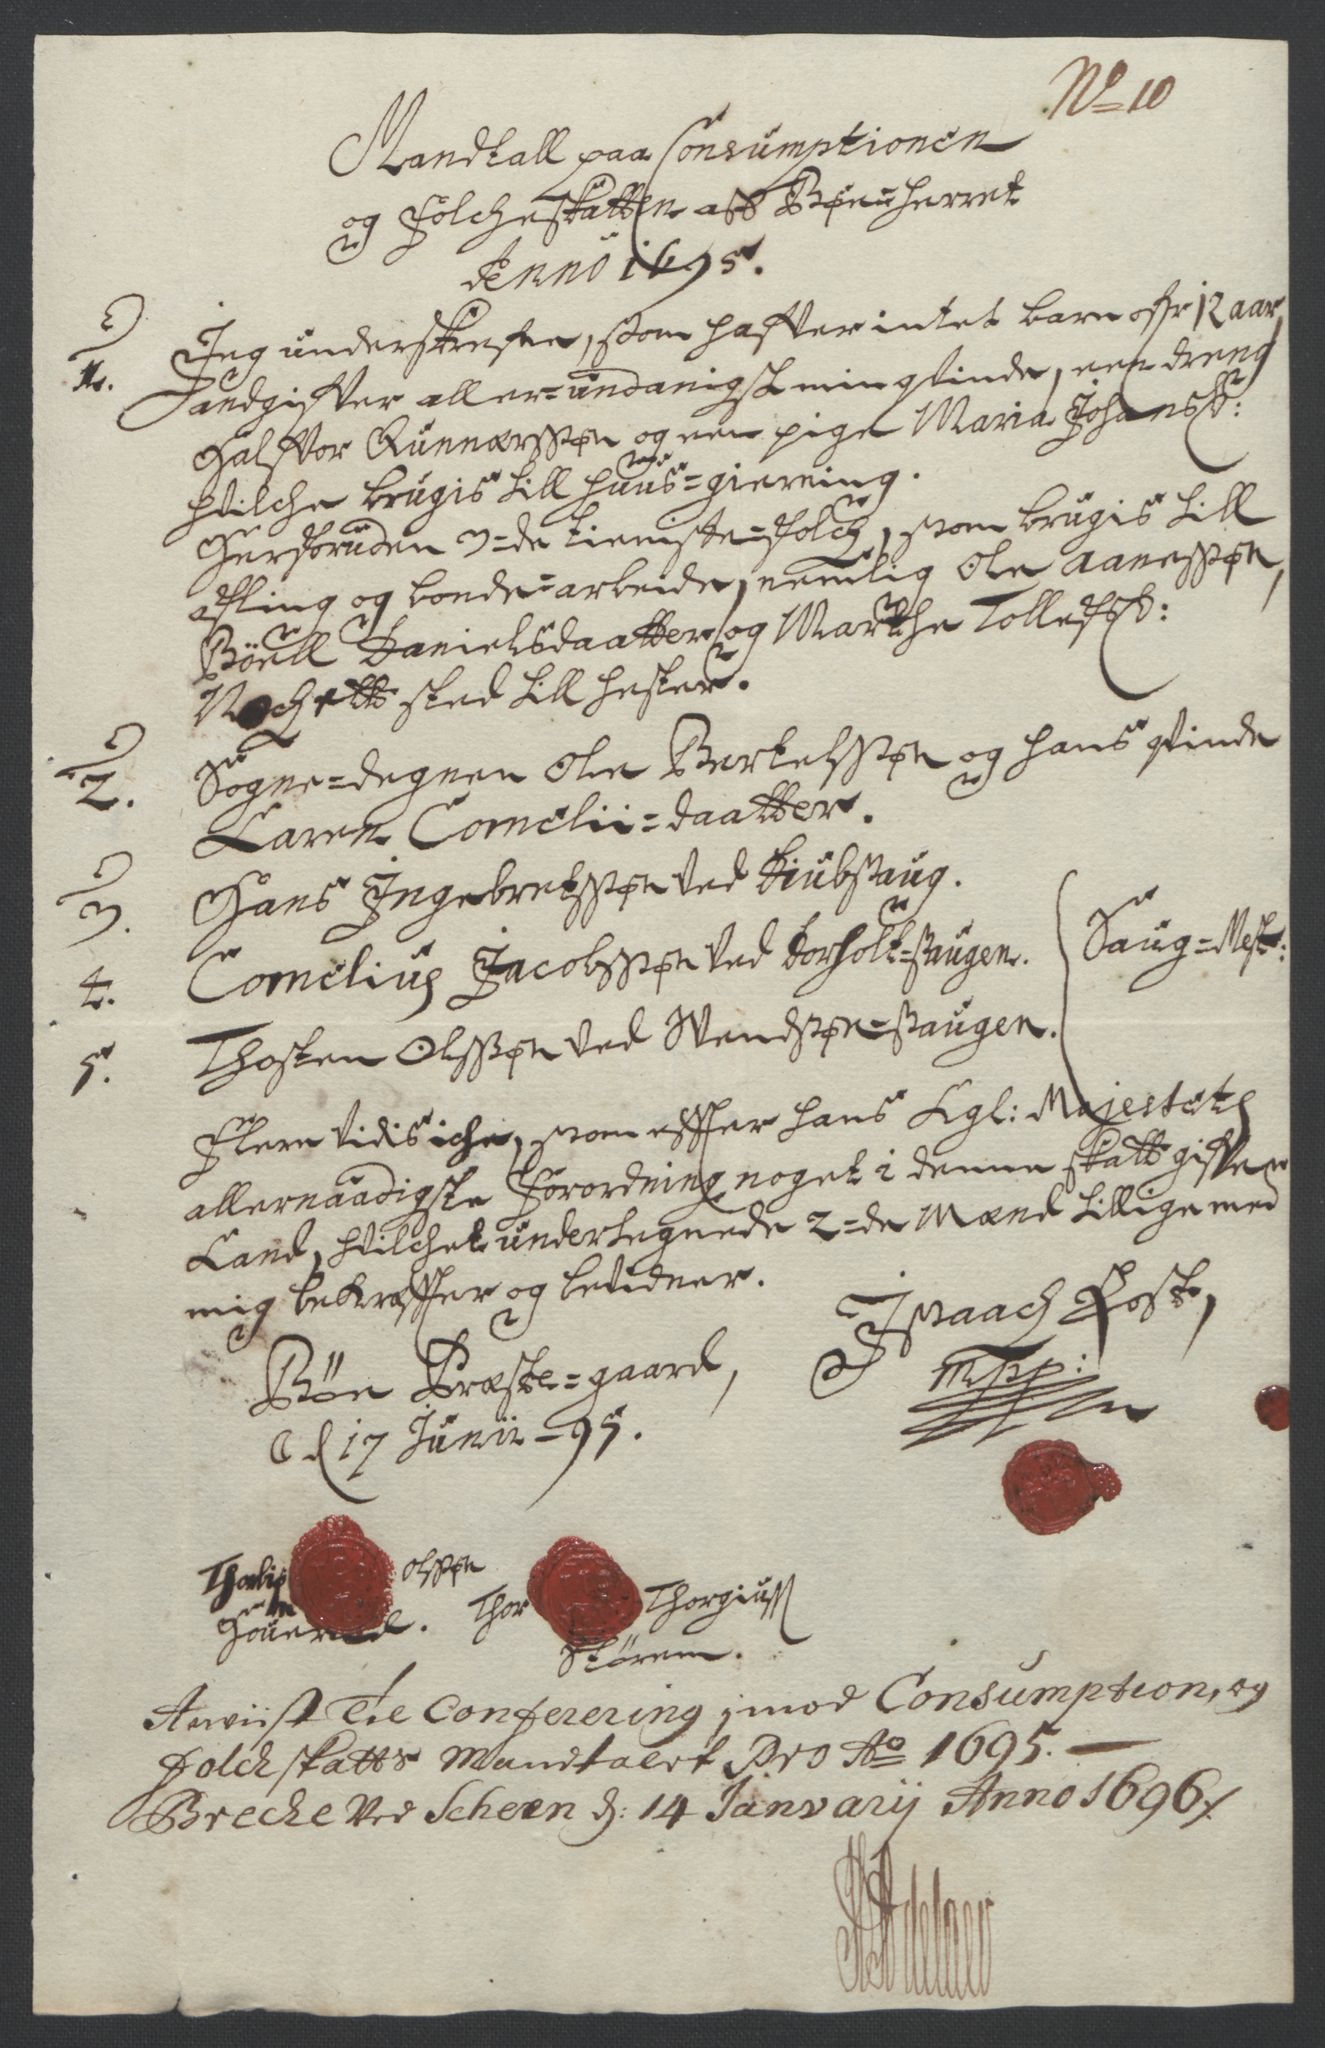 No 10
Mandtall paa Consumptionen
og Folcheskatten aff Bøe=herret
Anno 1695.
1. Jeg underskrefne, som haffver intet barn offr 12 aar,
angiffver aller=undanigst min qvinde, een dreng
Halffvor Gunnerssøn og een pige Maria Johansd:
hvilche brugis till huus=giering.
Herforuden 3=de tieniste=folch, som brugis till
afling og bonde=arbeide, nemlig Ole Aanessøn,
Bóell Danielsdaatter og Marthe Tollefsd:
Noch ett sted till hester.
2. Sogne=degnen Ole Bertelssøn og hans qvinde
Karen Cornelii=daatter.
3. Hans Ingebretssøn ved Diubsaug.
4. Cornelius Jacobssøn ved Dorholt=saugen. Saug=Mest:
5. Thosten Olssøn ved Svendsøe=saugen.
Flere vidis iche, som effter hans Kgl: Majestets
allernaadigste Forordning noget i denne skatt giffve
Kand, hvilchet undertegnede 2=de Mænd tillige med
mig bekræffter og bevidner.
Böe Præste=gaard, Isaach Fosk,
d 17 Junii -95. mpp:
Olssøn
Thor Thorgiuss
Anviist Til Conferering imod Consumption, og
folch skatts Mandtalet Pro Ao 1695.
Breche Ved Scheen d: 14 Januarij Anno 1696.
Adelaer